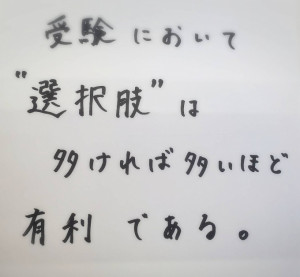 受験において
"選択肢"は
多ければ多いほど
有利である。